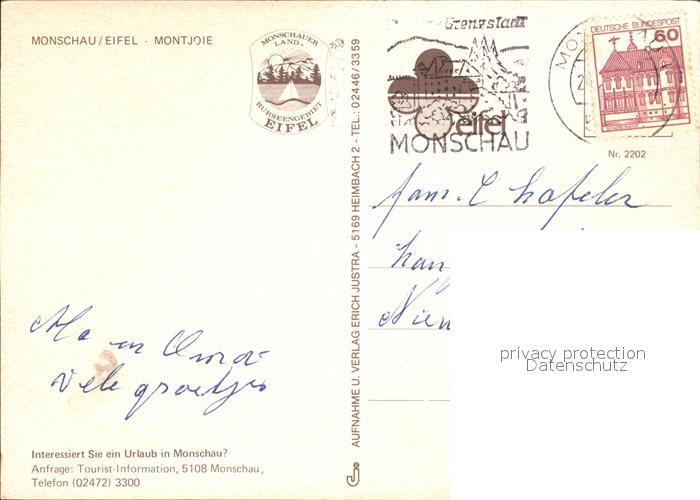 MONSCHAU/EIFEL - MONTJOIE
MONSCHAUER
LAND
RURSEENGEBIET
EIFEL
AUFNAHME U. VERLAG ERICH JUSTRA - 5169 HEIMBACH 2 - TEL.: 02446/3359
Grenzstadt
eifel
MONSCHAU
MON
DEUTSCHE BUNDESPOST
60
Nr. 2202
Fam.
han
Nieu
privacy protection
Datenschutz
Ma en Oma
Vele groetjes
Interessiert Sie ein Urlaub in Monschau?
Anfrage: Tourist-Information, 5108 Monschau,
Telefon (02472) 3300